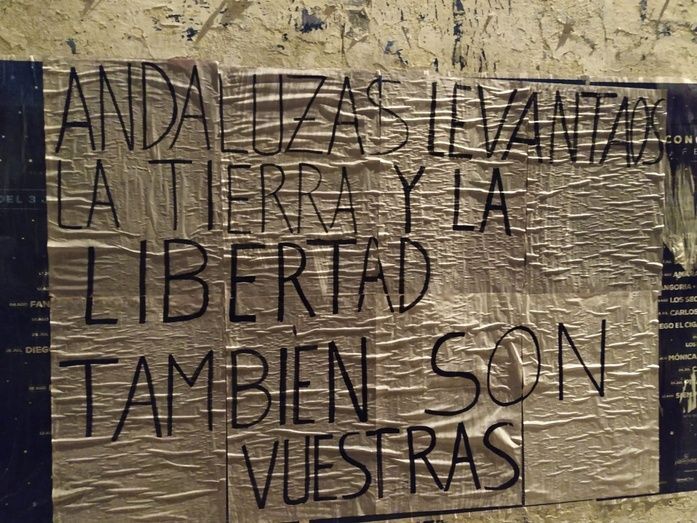 ANDALUZAS LEVANTAOS
LA TIERRA Y LA
LIBERTAD
TAMBIEN SON
VUESTRAS
DEL 3
FAN
DIEG
CON
FANGORIA
LOS SE
CARLOS
EGO EL C
LOS
MÓNICA
SIEN